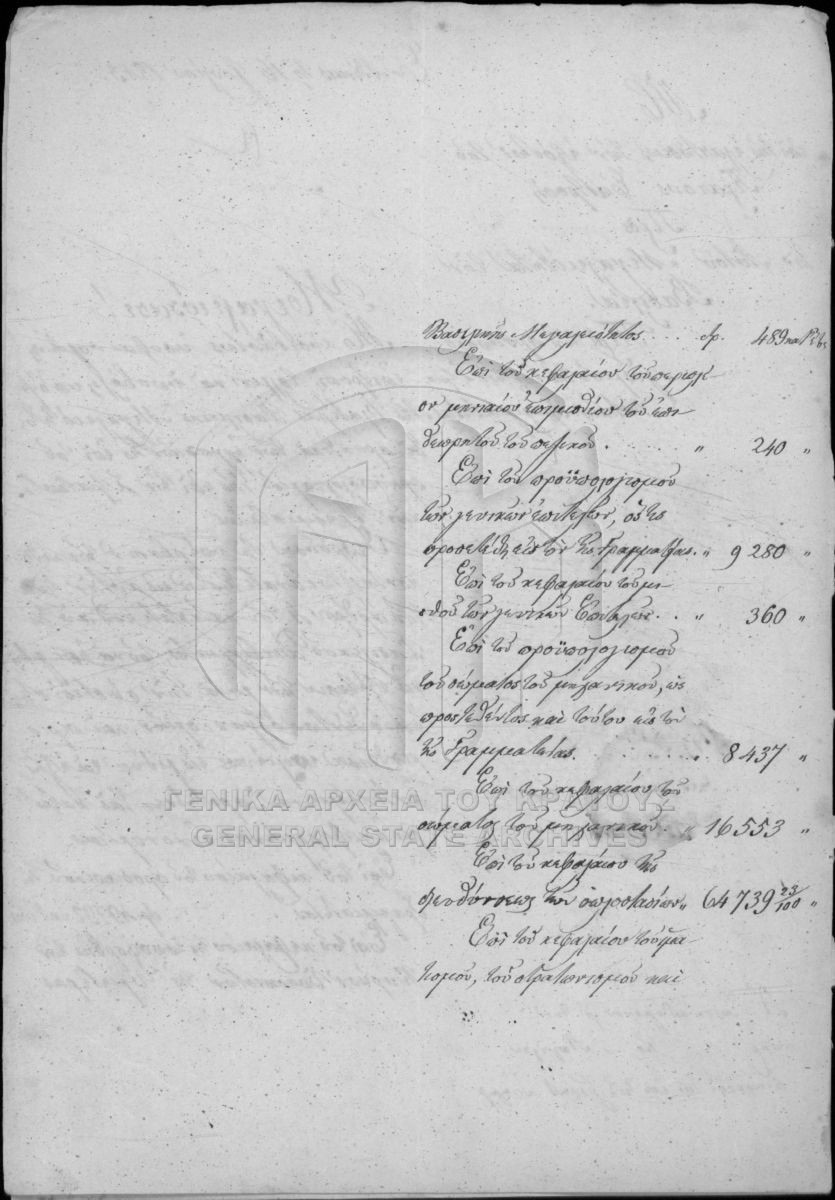 Βασιλικῆς Μεγαλειότητος . . . . δρ. 489 καὶ
Ἐπὶ τοῦ κεφαλαίου τοῦ
μηνιαίου ἐπιμισθίου τοῦ ἐπι
θεωρητοῦ τοῦ πεζικοῦ . „ 240 „
Ἐπὶ τοῦ προϋπολογισμοῦ
τῶν γενικῶν ἐπιτελῶν, ὅστις
προσετέθη εἰς τὸν τῆς Γραμματείας . „ 9 280 „
Ἐπὶ τοῦ κεφαλαίου τοῦ μι
σθοῦ τῶν γενικῶν Ἐπιτελῶν . . „ 360 „
Ἐπὶ τοῦ προϋπολογισμοῦ
τοῦ σώματος τοῦ μηχανικοῦ, ὡς
προστεθέντος καὶ τούτου εἰς τὸν
τῆς Γραμματείας . . . . . . „ 8 437 „
Ἐπὶ τοῦ κεφαλαίου τοῦ
σώματος τοῦ μηχανικοῦ . „ 16 553 „
Ἐπὶ τοῦ κεφαλαίου τῆς
διευθύνσεως τῶν ὁπλοστασίων „ 64 739 23/100 „
Ἐπὶ τοῦ κεφαλαίου τοῦ ἱμα
τισμοῦ, τοῦ στρατωνισμοῦ καὶ
ΓΕΝΙΚΑ ΑΡΧΕΙΑ ΤΟΥ ΚΡΑΤΟΥΣ
GENERAL STATE ARCHIVES